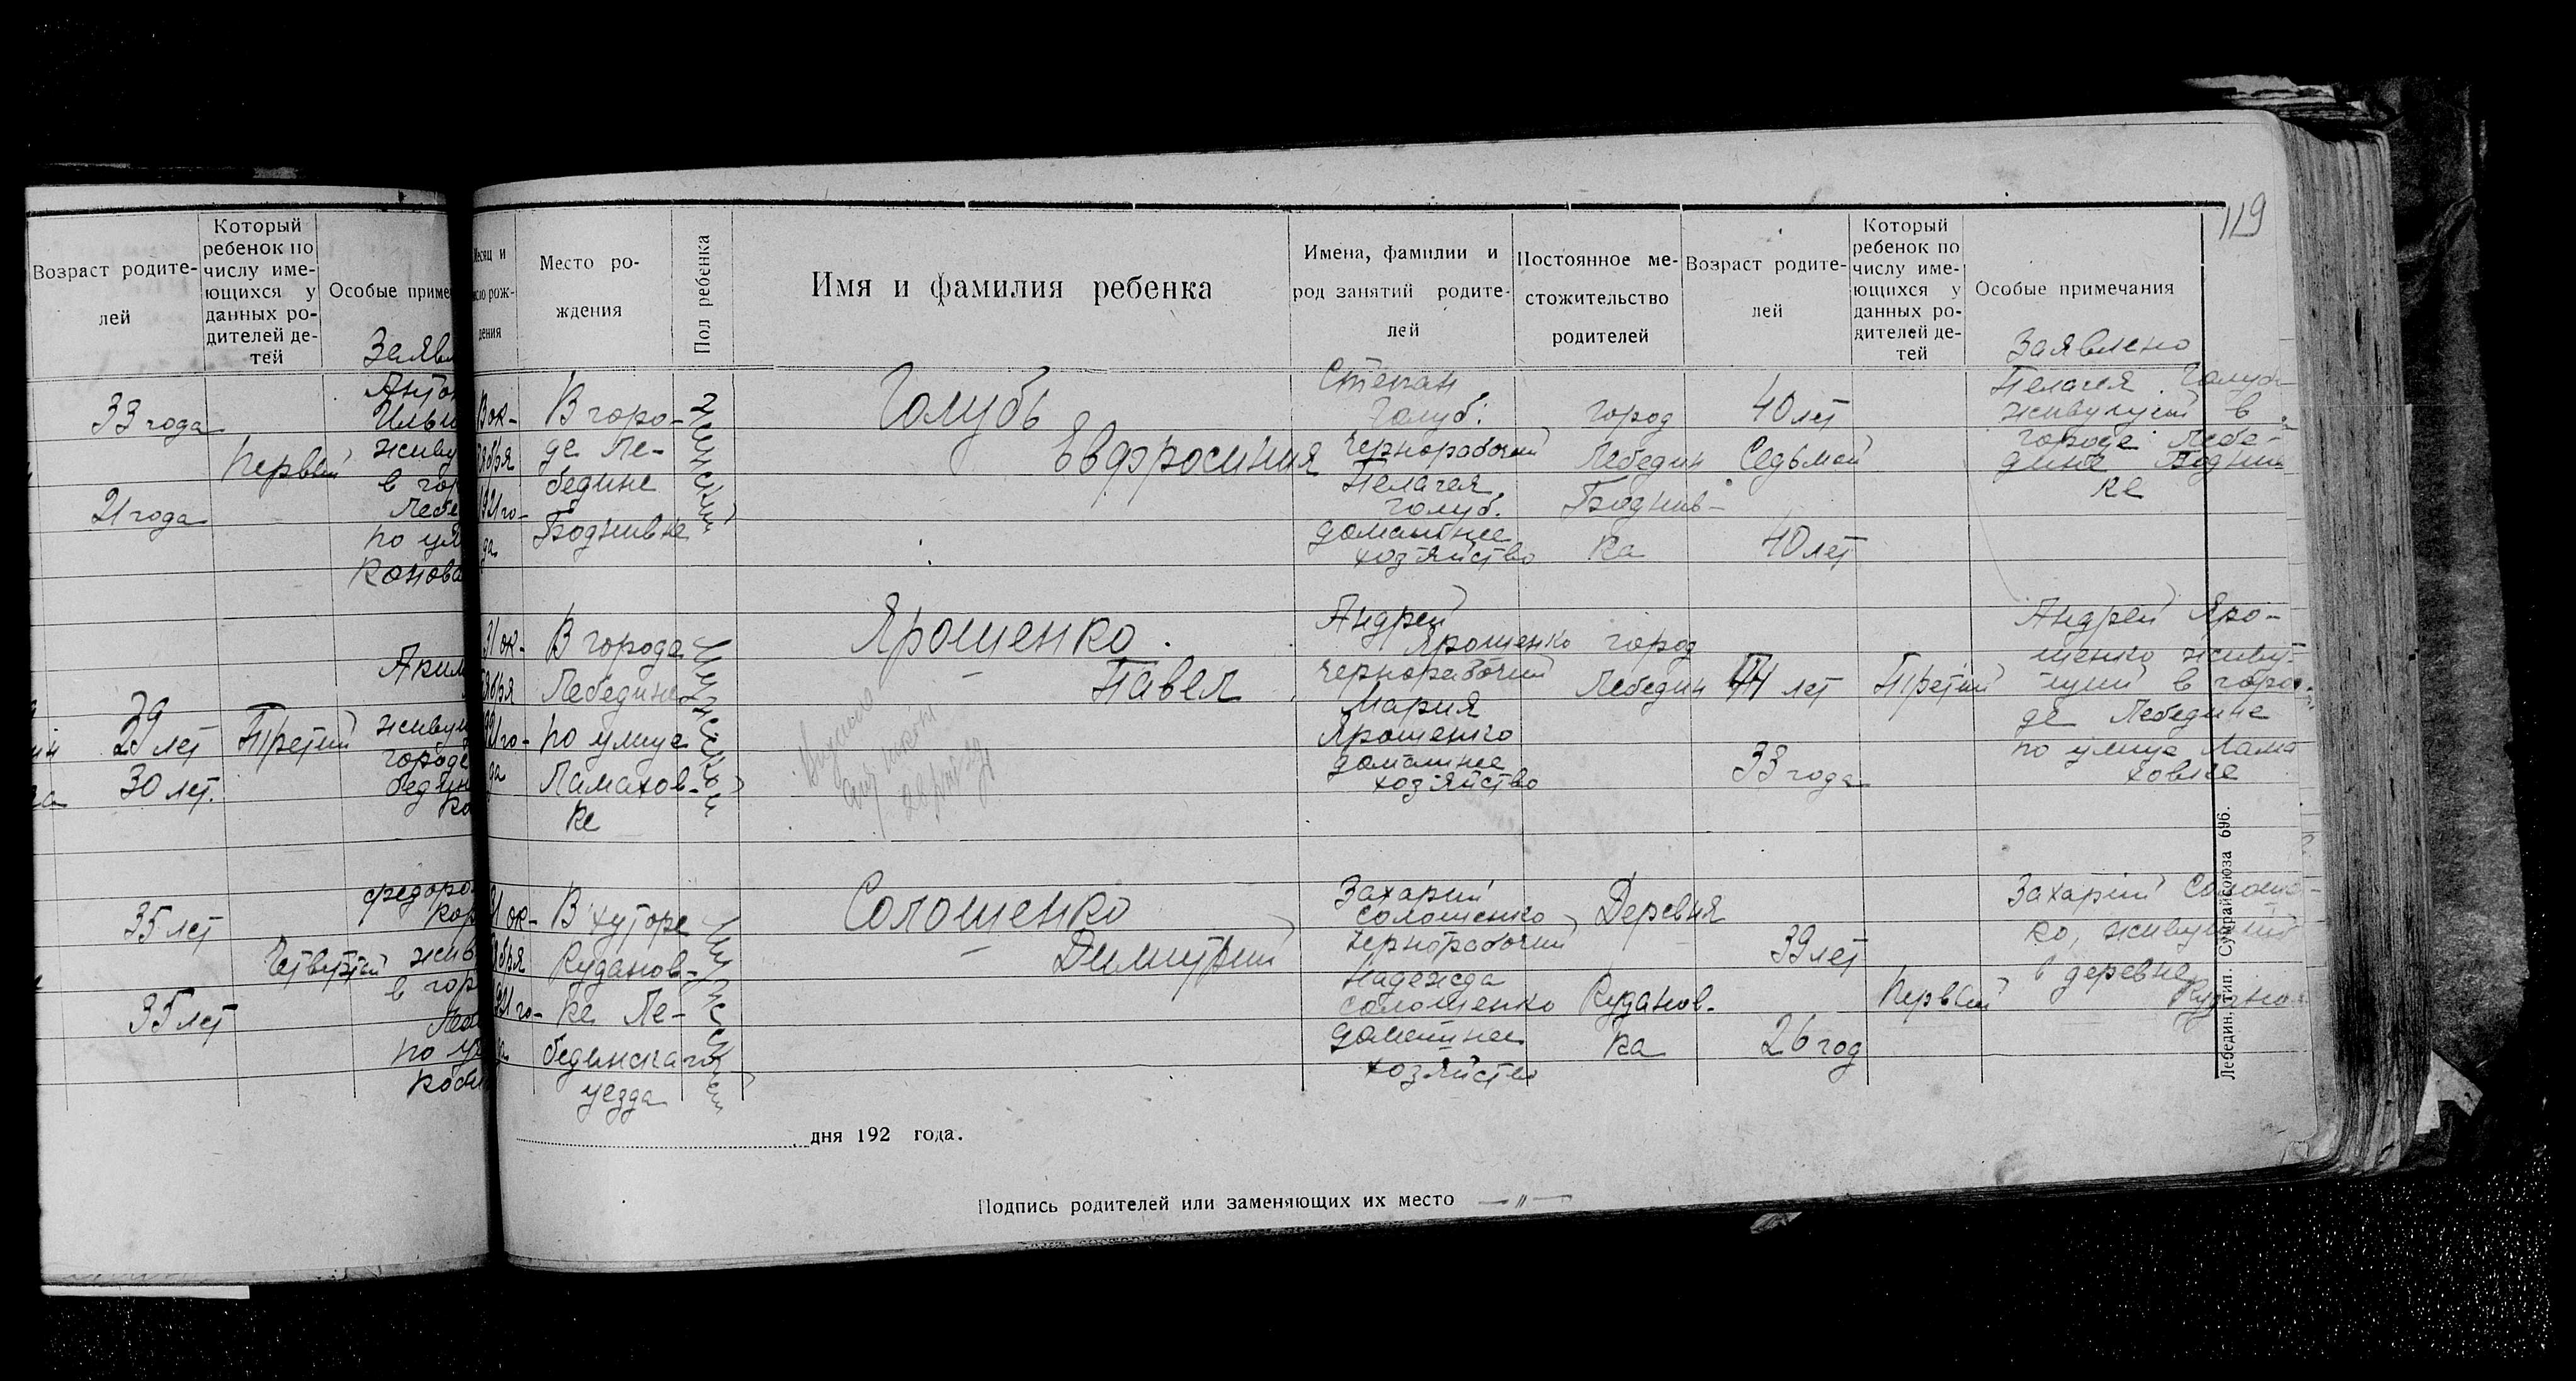 119
Возраст родите-
лей
Который
ребенок по
числу име-
ющихся у
данных ро-
дителей де-
тей
Особые приме
Заявл
33 года
21 года
Первый
Антон
Ильи
живу
в гор
Лебе
по ул
Конова
39
29 лет
30 лет.
Третий
Аким
живу
городе
бедин
ко
35 лет
35 лет
Четвертый
Федоро
Кор
жив
в гор
Ле
по у
Коб
Месяц и
число рож-
дения
Место ро-
ждения
Пол ребенка
Имя и фамилия ребенка
Имена, фамилии и
род занятий родите-
лей
Постоянное ме-
стожительство
родителей
Возраст родите-
лей
Который
ребенок по
числу име-
ющихся у
данных ро-
дителей де-
тей
Особые примечания
Заявлено
ок-
ября
1921 го-
да
В горо-
де Ле-
бедине
Боднивке
Женский
Голубь
Евфросиния
Степан
Голуб.
Чернорабочий
Пелагея
Голуб.
домашнее
хозяйство
город
Лебедин
Боднив-
ка
40 лет
Седьмой
40 лет
Пелагея Голуб
живущий в
городе Лебе-
дине Бодни
ке
31 ок-
ября
921 го-
да
В городе
Лебедине
по улице
Ламахов-
ке
Мужской
Ярошенко.
Павел
Андрей
Ярошенко
Чернорабочий
Мария
Ярошенко
домашнее
хозяйство
город
Лебедин
44 лет
33 года
Третий
Андрей Яро-
шенко живу-
щий в горо-
де Лебедине
по улице Лама
ховке
1 ок-
ября
921 го-
да
В хуторе
Руданов-
ке Ле-
бединскаго
уезда
Мужской
Солошенко
Димитрий
Захарий
Солошенко
Чернорабочий
Надежда
Солошенко
домашнее
хозяйство
Деревня
Руданов-
ка
39 лет
26 год
Первый
Захарий Солоше-
ко, живущий
в деревне
Рудано-
дня 192 года.
Подпись родителей или заменяющих их место — „ —
Лебедин. тип. Сумрайсоюза 696.